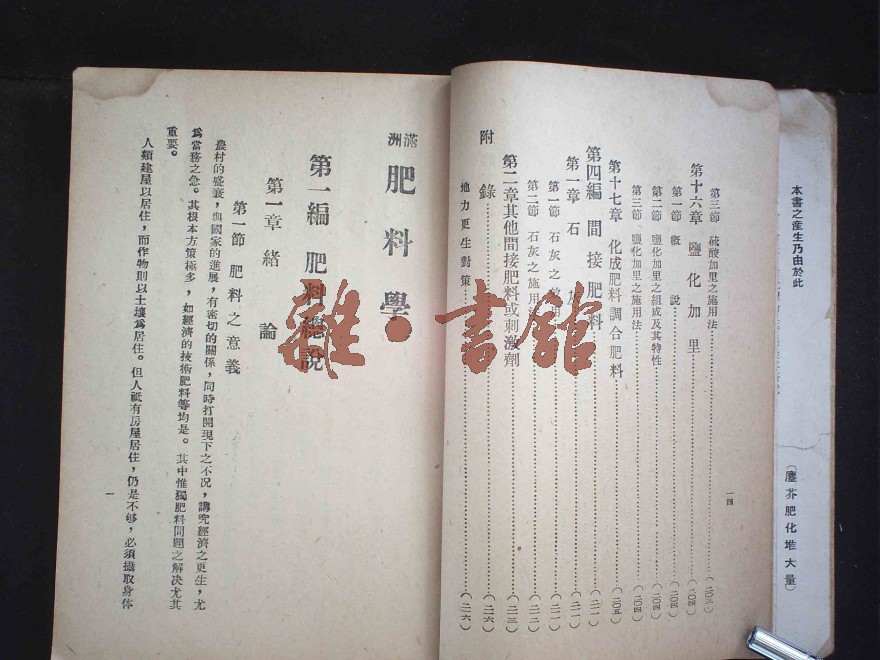 本書之產生乃由於此
（塵芥肥化堆大量）
一四
第三節 硫酸加里之施用法（二〇三）
第十六章 鹽化加里（二〇四）
第一節 概說（二〇四）
第二節 鹽化加里之組成及其特性（二〇四）
第三節 鹽化加里之施用法（二〇四）
第十七章 化成肥料調合肥料（二〇五）
第四編 間接肥料（二一一）
第一章 石灰（二一一）
第一節 石灰之效用（二一一）
第二節 石灰之施用法（二一二）
第二章其他間接肥料或刺激劑（二一三）
附錄（二一六）
地力更生對策（二一六）
滿洲 肥料學
第一編 肥料總說
第一章 緒論
第一節 肥料之意義
農村的盛衰，與國家的進展，有密切的關係，同時打開現下之不況，講究經濟之更生，尤
爲當務之急。其根本方策極多，如經濟的技術肥料等均是。其中惟獨肥料問題之解决尤其
重要。
人類建屋以居住，而作物則以土壤爲居住。但人祇有房屋居住，仍是不够，必須攝取身体
一
雜·書館